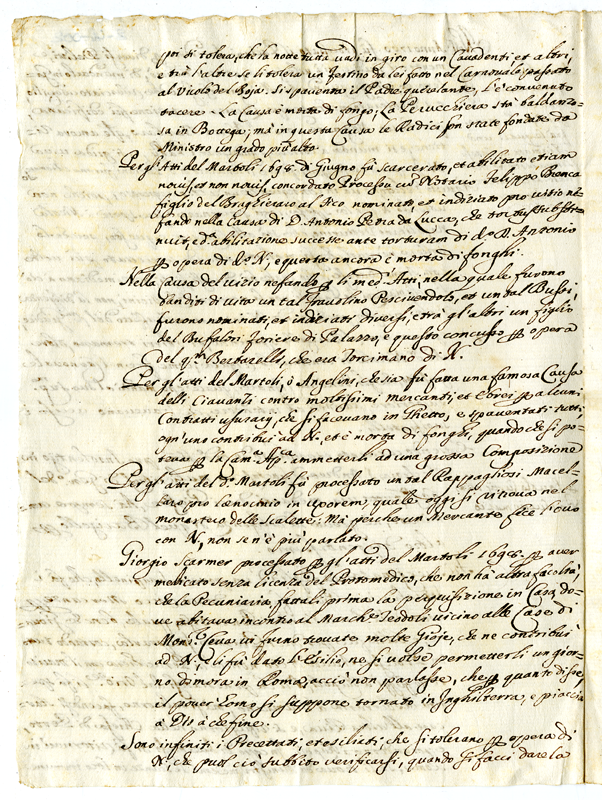 poi si tolera, che la notte tutta vadi in giro con un Cavadenti, et altri,
e trà l'altre se li tolera un festino da lei fatto nel Carnovale passato
al Vicolo del Soja, si spaventa il Padre querelante, e s'è convenuto
tacere. La Causa è morta di fongo; La Peruchiera stà baldanzo-
sa in Bottega; mà in questa Causa le Radici son state fondate da
Ministro un grado più alto.
Per gl'Atti del Martoli 1698. di Giugno fù scarcerato, et abilitato etiam
novis, et non novis, concordato Processu cum Notario Felippo Bianca
figlio del Bragieraro al Vico nominato, et indiziato pro vitio ne-
fando nella Causa di D. Antonio Petra da Lucca, che tortus substi-
nuit, ed abilitazione successe ante torturam di do. D. Antonio
opera di do. N., e questa ancora è morta di fonghi.
Nella Causa del vizio nefando li med. Atti, nella quale furono
banditi di vita un tal Favolino Pescivendolo, et un tal Bussi,
furono nominati, et indiziati diversi, e trà gl'altri un figlio
del Bufaloni Foriere di Palazzo, e questo concusso opera
del qm. Berbarelli, che era Torcimano di N.
Per gl'atti del Martoli, ò Angelini, che sia fù fatta una famosa Causa
delli Ciavanti contro moltissimi mercanti, et ebrei alcuni
Contratti usurarij, che si facevano in Ghetto, e spaventati tutti,
ogn'uno contribuì ad N. et è morta di fonghi, quando che si po-
teva la Cam.a Ap.ca ammetterli ad una grossa Composizione
Per gl'atti del do. Martoli fù processato un tal Pappagliosi Macel-
laro pro lenocinio in uxorem, quale oggi si ritrova nel
monastero delle Scalette: Mà perche un Mercante fece l'ovo
con N., non se n'è più parlato.
Giorgio Scarmer processato gl'atti del Martoli 1698. aver
medicato senza licenza del Protomedico, che non hà altra facoltà,
che la Pecuniaria, fattali prima la perquisizione in Casa do-
ve abitava incontro al March. Teodoli vicino alle Case di
Mons. Ceva ivi furno trovate molte Gioje, che ne contribuì
ad N., e li fù dato l'Esilio, ne si volse permetterli un gior-
no dimora in Roma, acciò non parlasse, che quanto disse,
il pover Uomo si suppone tornato in Inghilterra, e piaccia
à Dio à che fine.
Sono infiniti i Precettati, et esiliati, che si tolerano opera di
N., che puol ciò subbito verificarsi, quando si facci dare la